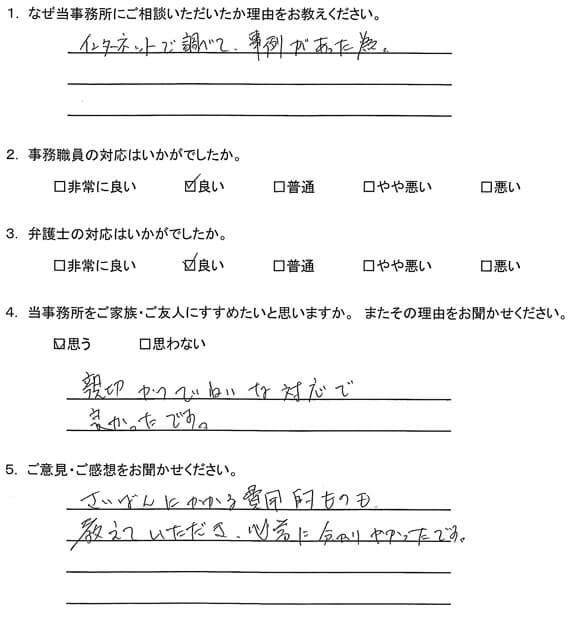 1. なぜ当事務所にご相談いただいたか理由をお教えください。
インターネットで調べて、事例があった為。
2. 事務職員の対応はいかがでしたか。
□非常に良い ☑良い □普通 □やや悪い □悪い
3. 弁護士の対応はいかがでしたか。
□非常に良い ☑良い □普通 □やや悪い □悪い
4. 当事務所をご家族・ご友人にすすめたいと思いますか。 またその理由をお聞かせください。
☑思う □思わない
親切かつていねいな対応で
良かったです。
5. ご意見・ご感想をお聞かせください。
さいばんにかかる費用的ものも
教えていただき、非常に分かりやすかったです。